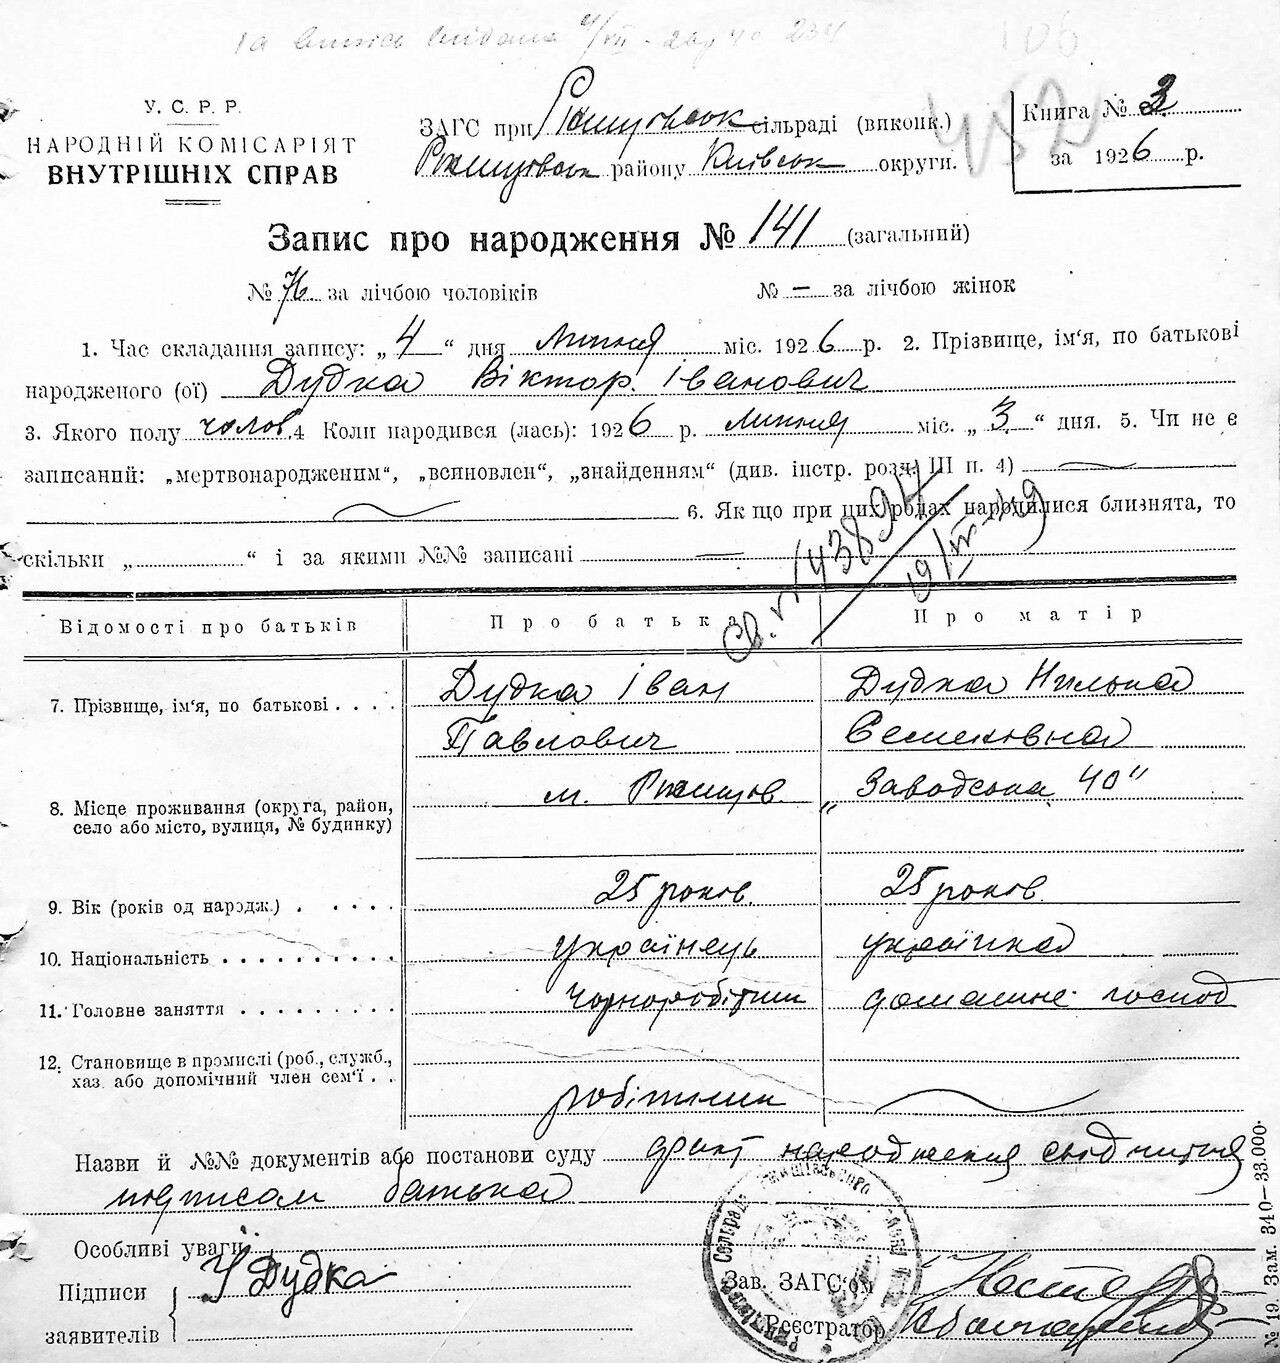 У. С. Р. Р.
НАРОДНІЙ КОМІСАРІЯТ
ВНУТРІШНІХ СПРАВ
ЗАГС при сільраді (виконк.)
району Київськ округи.
Книга № 3
за 1926 р.
Запис про народження № 141 (загальний)
№ 76 за лічбою чоловіків № — за лічбою жінок
1. Час складання запису: „4“ дня Липня міс. 1926 р. 2. Прізвище, ім'я, по батькові
народженого (ої) Дудка Віктор Іванович
3. Якого полу чолов. 4 Коли народився (лась): 1926 р. Липня міс. „3“ дня. 5. Чи не є
записаний: „мертвонародженим“, „всиновлен“, „знайденням“ (див. інстр. розд. III п. 4)
6. Як що при цих родах народилися близнята, то
скільки „ “ і за якими №№ записані
Відомості про батьків Про батька Про матір
7. Прізвище, ім'я, по батькові . . . . Дудка Іван Павлович Дудка Килька Семеновна
8. Місце проживання (округа, район, село або місто, вулиця, № будинку) м. Ржищов „Заводська 40“
9. Вік (років од народж.) . . . . . 25 років. 25 років.
10. Національність . . . . . . . . . . українець українка
11. Головне заняття . . . . . . . . . чорноробітник домашнє господ
12. Становище в промислі (роб., служб., хаз. або допомічний член сем'ї . . робітник
Назви й №№ документів або постанови суду факт народження свідчиться
підписом батька
Особливі уваги
Підписи
заявителів
У Дудка
Зав. ЗАГС'ом
Реєстратор
№ 19. Зам. 340—33.000.